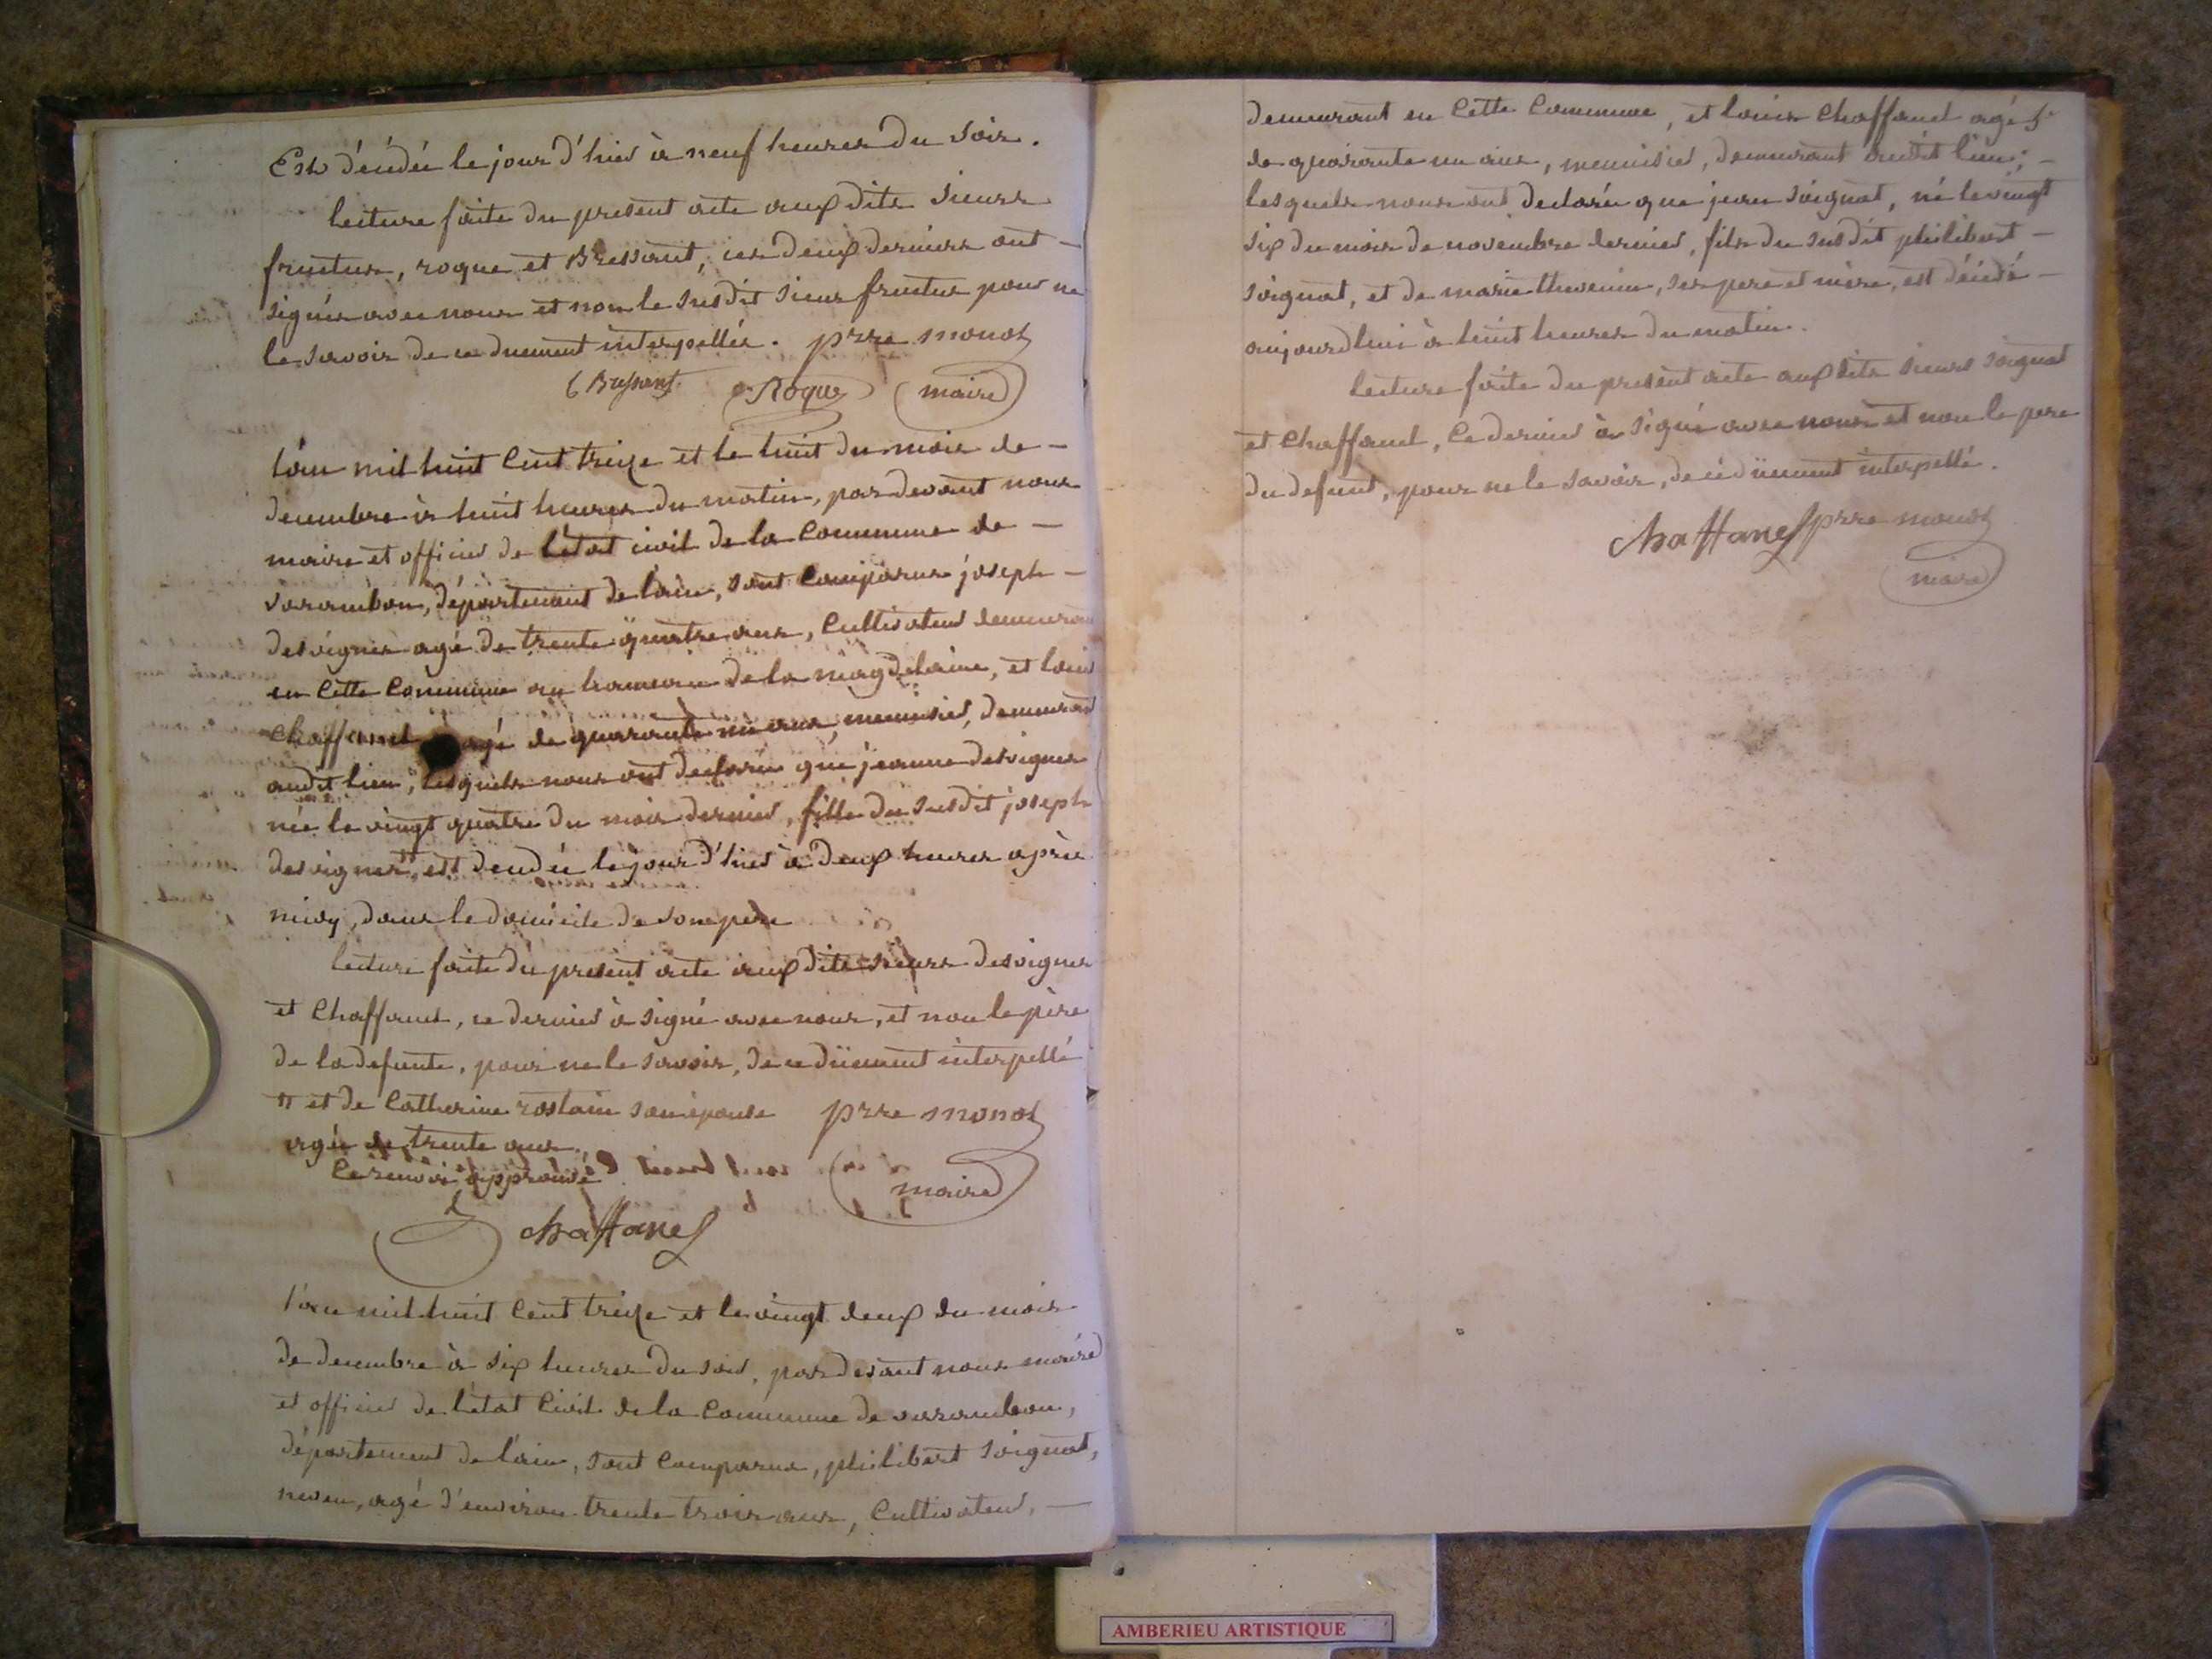 Est décédée le jour d'hier à neuf heures du soir.
lecture faite du present acte aux dits sieurs
fructus, roque et Bressant, ces deux derniers ont —
signés avec nous et non le susdit sieur fructus pour ne
le savoir de ce duement interpellés. prre monod
Bressant Roque maire
l'an mil huit Cent treize et le huit du mois de —
decembre à huit heures du matin, par devant nous
maire et officier de l'état civil de la Commune de —
varambon, département de l'ain, sont Comparus joseph —
desvignes agé de trente quatre ans, Cultivateur demeurant
en Cette Commune au hameau de la magdelaine, et louis
Chaffanel agé de quarante un ans, menuisier, demeurant
audit lieu, lesquels nous ont declarée que jeanne desvignes
née le vingt quatre du mois dernier, fille du susdit joseph
desvignes, est decedée le jour d'hier à deux heures après
midy, dans le domicile de son père
lecture faite du present acte aux dits sieurs desvignes
et Chaffanel, ce dernier à signé avec nous, et non le père
de la defunte, pour ne le savoir, de ce dûement interpellé
et de Catherine rostain son épouse prre monod
agée de trente ans.
le renvoi approuvé maire
chaffanel
l'an mil huit Cent treize et le vingt deux du mois
de decembre à six heures du soir, par devant nous maire
et officier de l'état Civil de la Commune de varambon,
département de l'ain, sont Comparus, philibert soignat,
neveu, agé d'environ trente trois ans, Cultivateur, —
demeurant en Cette Commune, et louis Chaffanel agé
de quarante un ans, menuisier, demeurant audit lieu; —
lesquels nous ont declarée que jean soignat, né le vingt
six du mois de novembre dernier, fils du susdit philibert —
soignat, et de marie thevenin, ses pere et mère, est décédé —
aujourd'hui à huit heures du matin.
lecture faite du present acte aux dits sieurs soignat
et Chaffanel, Ce dernier à signé avec nous et non le pere
du defunt, pour ne le savoir, de cé dûement interpellé.
chaffanel prre monod
maire
AMBERIEU ARTISTIQUE